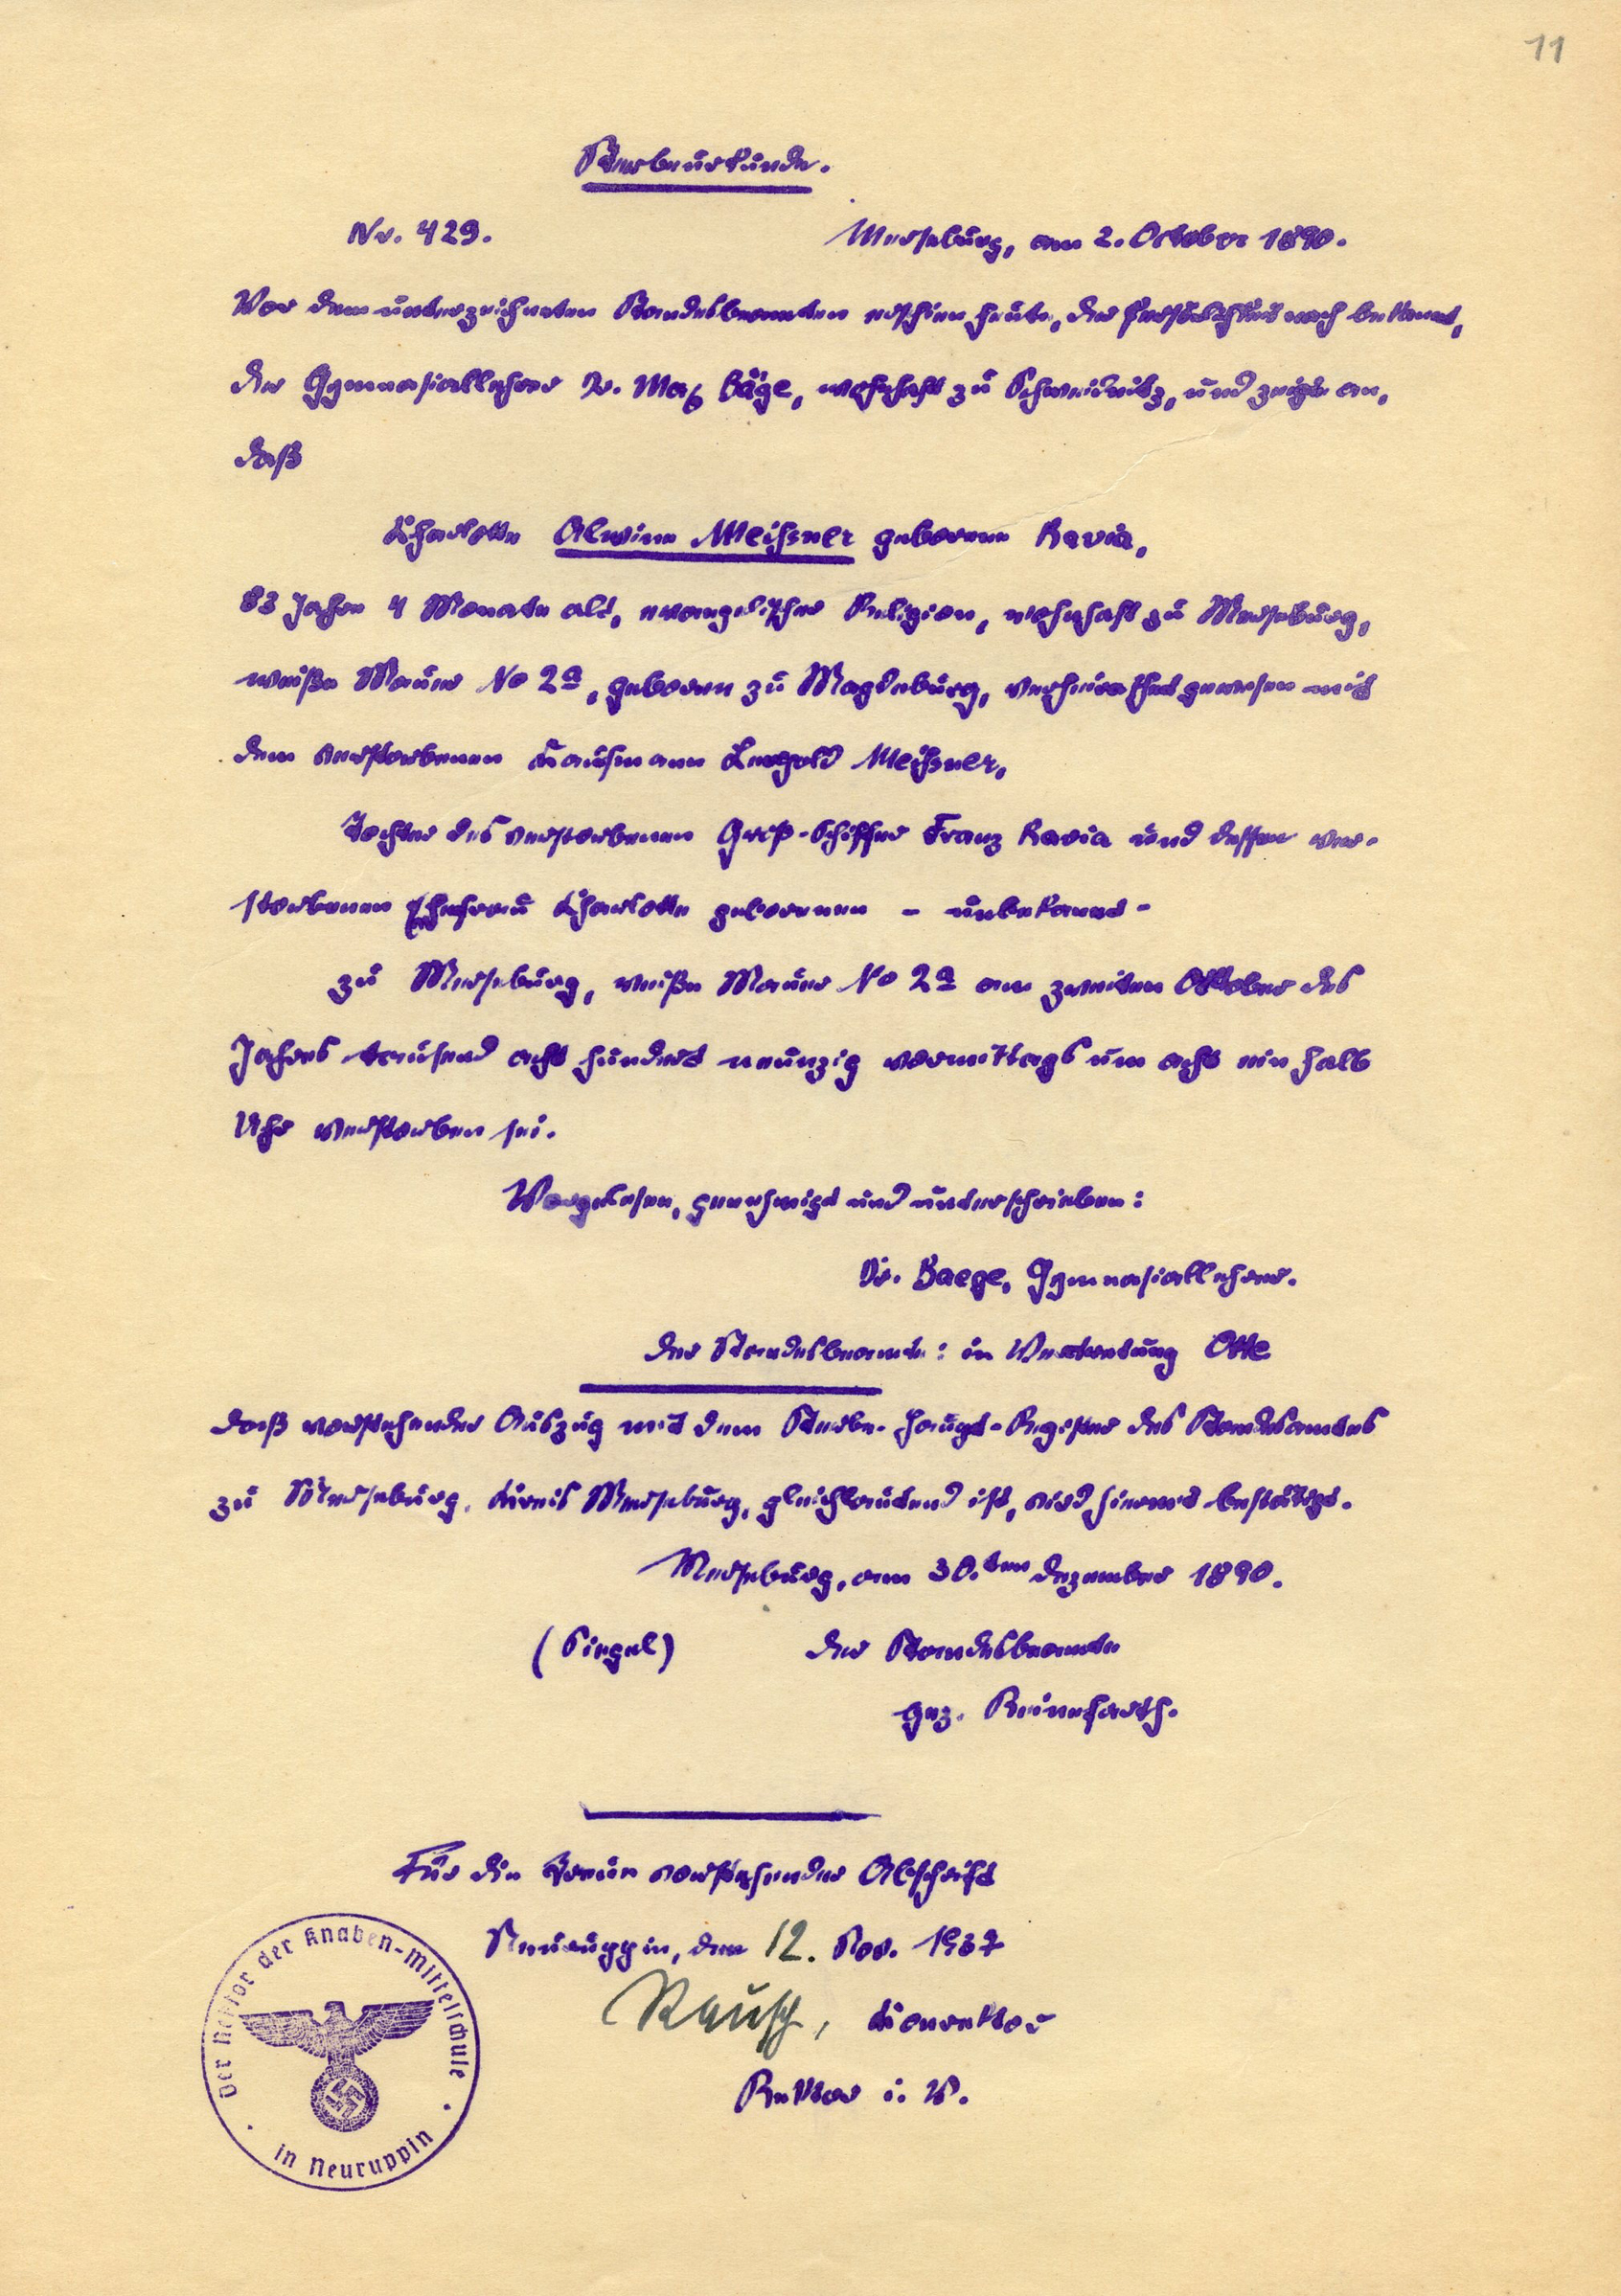 11
Sterbeurkunde.
Nr. 429. Merseburg, am 2. October 1890.
Vor dem unterzeichneten Standesbeamten erschien heute, der Persönlichkeit nach bekannt,
der Gymnasiallehrer Dr. Max Bäge, wohnhaft zu Schweidnitz, und zeigte an,
daß
Charlotte Alwine Meißner geborene Ravia,
83 Jahre 4 Monate alt, evangelischer Religion, wohnhaft zu Merseburg,
weiße Mauer No 2a, geboren zu Magdeburg, verheirathet gewesen mit
dem verstorbenen Kaufmann Leopold Meißner,
Tochter des verstorbenen Groß-Schiffer Franz Ravia und dessen ver-
storbenen Ehefrau Charlotte geborenen - unbekannt -
zu Merseburg, weiße Mauer No 2a am zweiten Oktober des
Jahres tausend acht hundert neunzig vormittags um acht ein halb
Uhr verstorben sei.
Vorgelesen, genehmigt und unterschrieben:
Dr. Baege, Gymnasiallehrer.
Der Standesbeamte: in Vertretung Otte
Daß vorstehender Auszug mit dem Sterbe-Haupt-Register des Standesamtes
zu Merseburg, Kreis Merseburg, gleichlautend ist, wird hiermit bestätigt.
Merseburg, am 30.ten Dezember 1890.
(Siegel) Der Standesbeamte
gez. Reinefarth.
Für die Treue vorstehender Abschrift
Neuruppin, den 12. Nov. 1937
Rausch, Konrektor
Rektor i. V.
Der Rektor der Knaben-Mittelschule
in Neuruppin